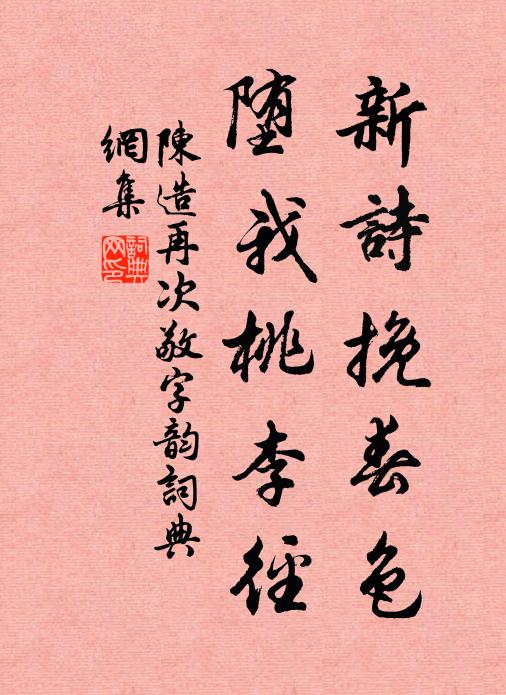 新詩挽春色
堕我桃李徑
陳造再次敬字韵詞典
網集
詞典
网印